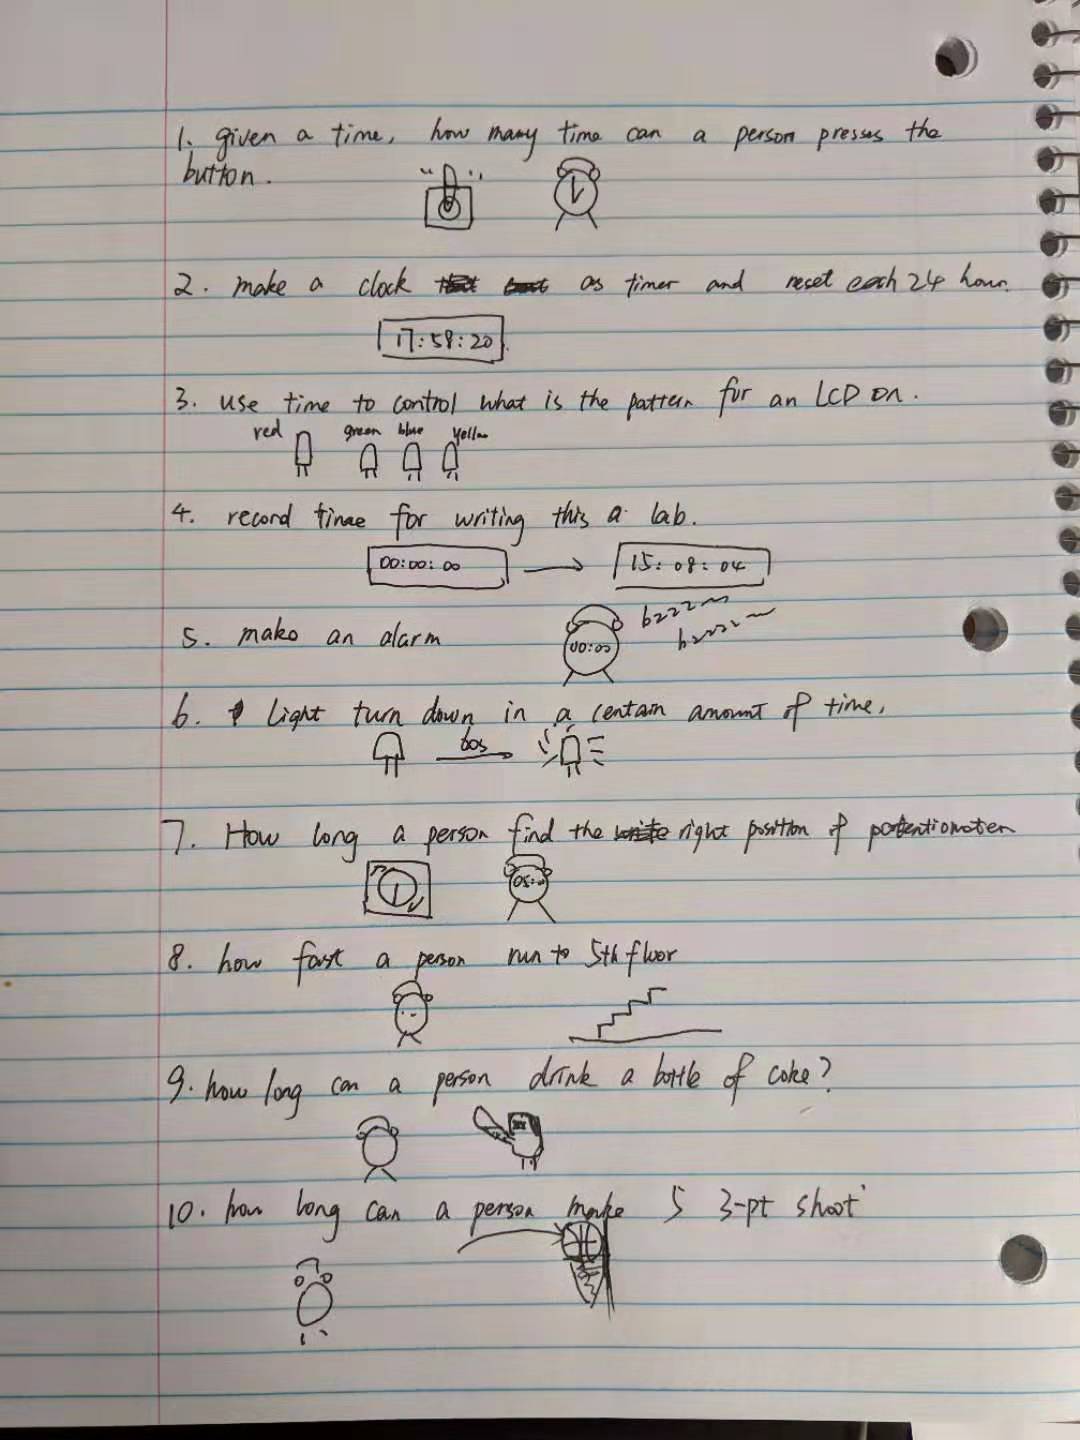 1. given a time, how many time can a person presses the
button.
2. make a clock as timer and reset each 24 hour.
17:58:20
3. use time to control what is the pattern for an LCD on.
red green blue yellow
4. record time for writing this a lab.
00:00:00 15:08:04
5. make an alarm
00:00
bzzz
bzzzz
6. Light turn down in a certain amount of time.
60s
7. How long a person find the right position of potentiometer
05:00
8. how fast a person run to 5th floor
9. how long can a person drink a bottle of coke?
10. how long can a person make 5 3-pt shoot